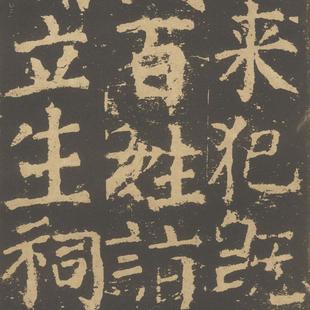 来犯
百姓請
立生祠